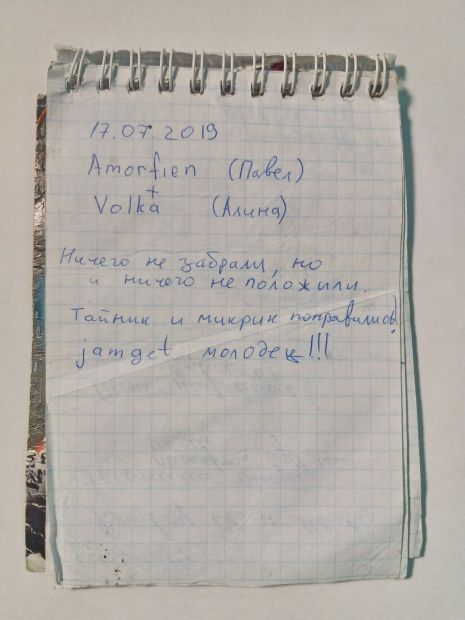 17.07.2019
Amorfien (Павел)
+
Volka (Алина)
Ничего не забрали, но
и ничего не положили.
Тайник и микрик понравились!
jamget молодец!!!